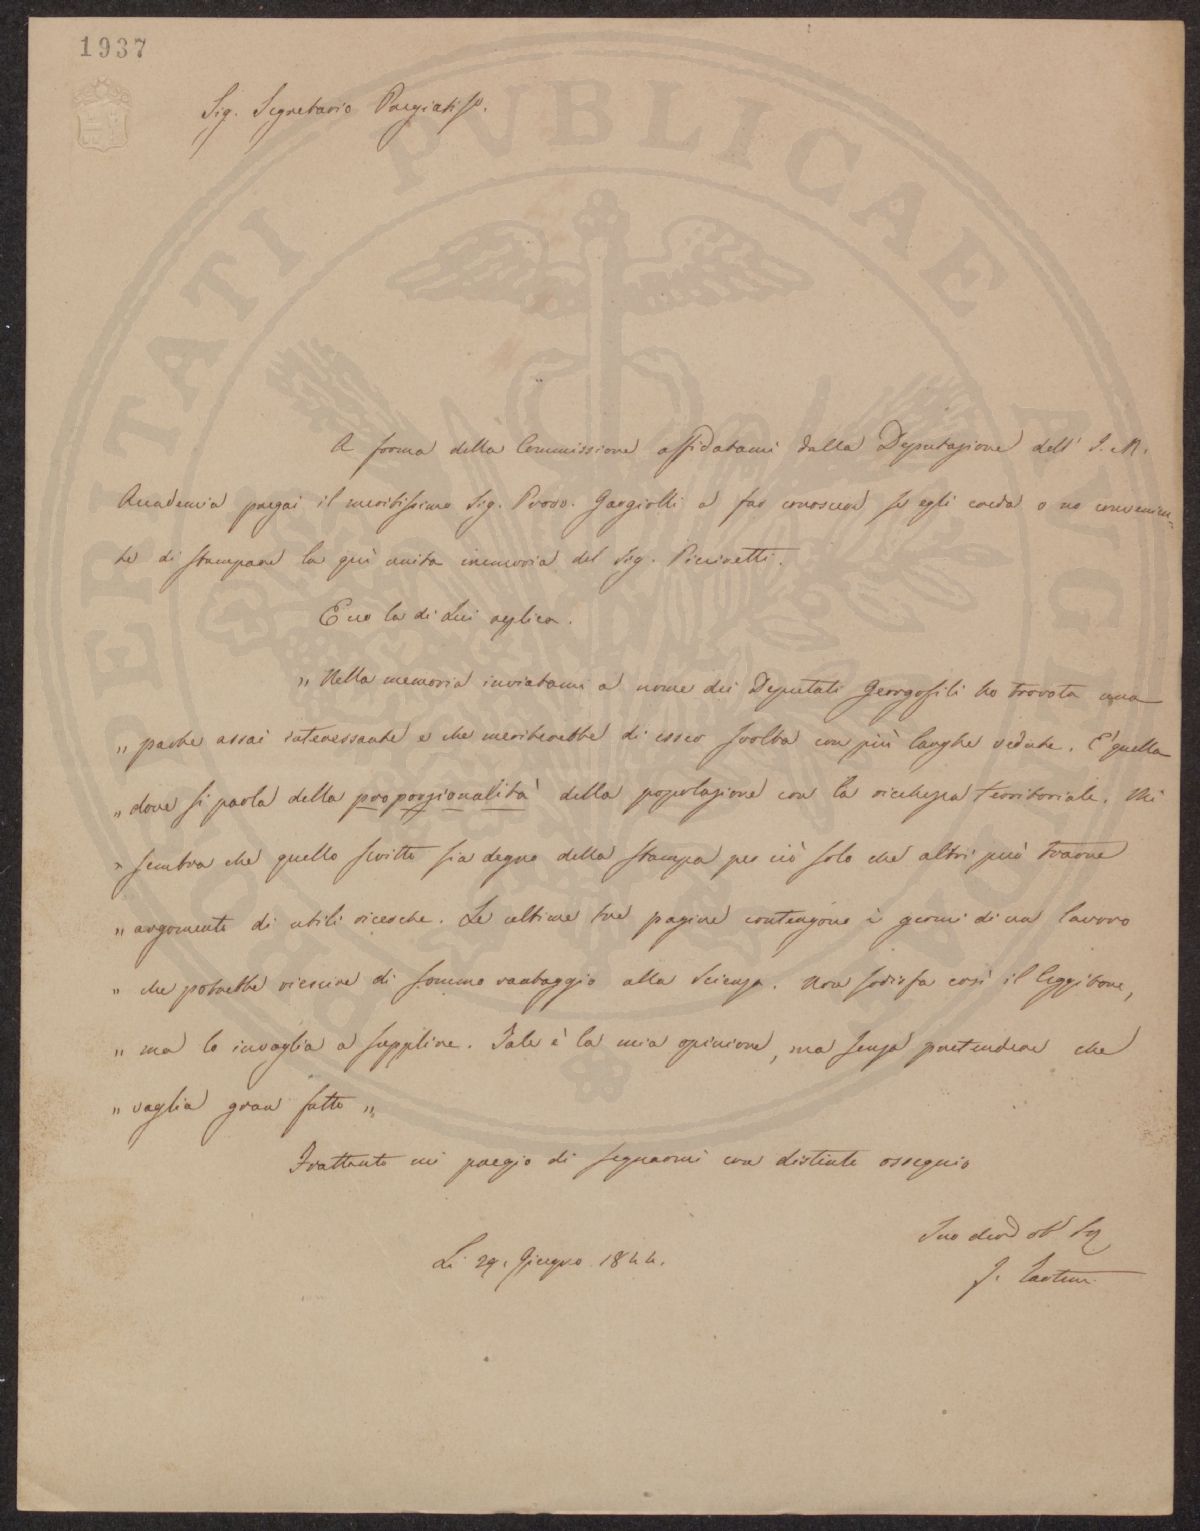 1937
Sig. Segretario Pregiatiss.
PROSPERITATI PVBLICAE AVGENDAE
A forma della Commissione affidatami dalla Deputazione dell' I. e R.
Accademia pregai il meritissimo Sig. Provv. Gargiolli a far conoscere se egli creda o no convenien-
te di stampare la quì unita memoria del Sig. Piccinetti.
Ecco la di Lui replica.
" Nella memoria inviatami a nome dei Deputati Georgofili ho trovata una
" parte assai interessante e che meriterebbe di esser svolta con più larghe vedute. E' quella
" dove si parla della proporzionalità della popolazione con la ricchezza territoriale. Mi
" sembra che quello scritto sia degno della stampa per ciò solo che altri può trarne
" argomento di utili ricerche. Le ultime tre pagine contengono i germi di un lavoro
" che potrebbe riescire di sommo vantaggio alla Scienza. Non sodisfa così il leggitore,
" ma lo invoglia a supplire. Tale è la mia opinione, ma senza pretendere che
" vaglia gran fatto "
Frattanto mi pregio di segnarmi con distinto ossequio
Suo dev. ob.
Li 29. Giugno 1844.